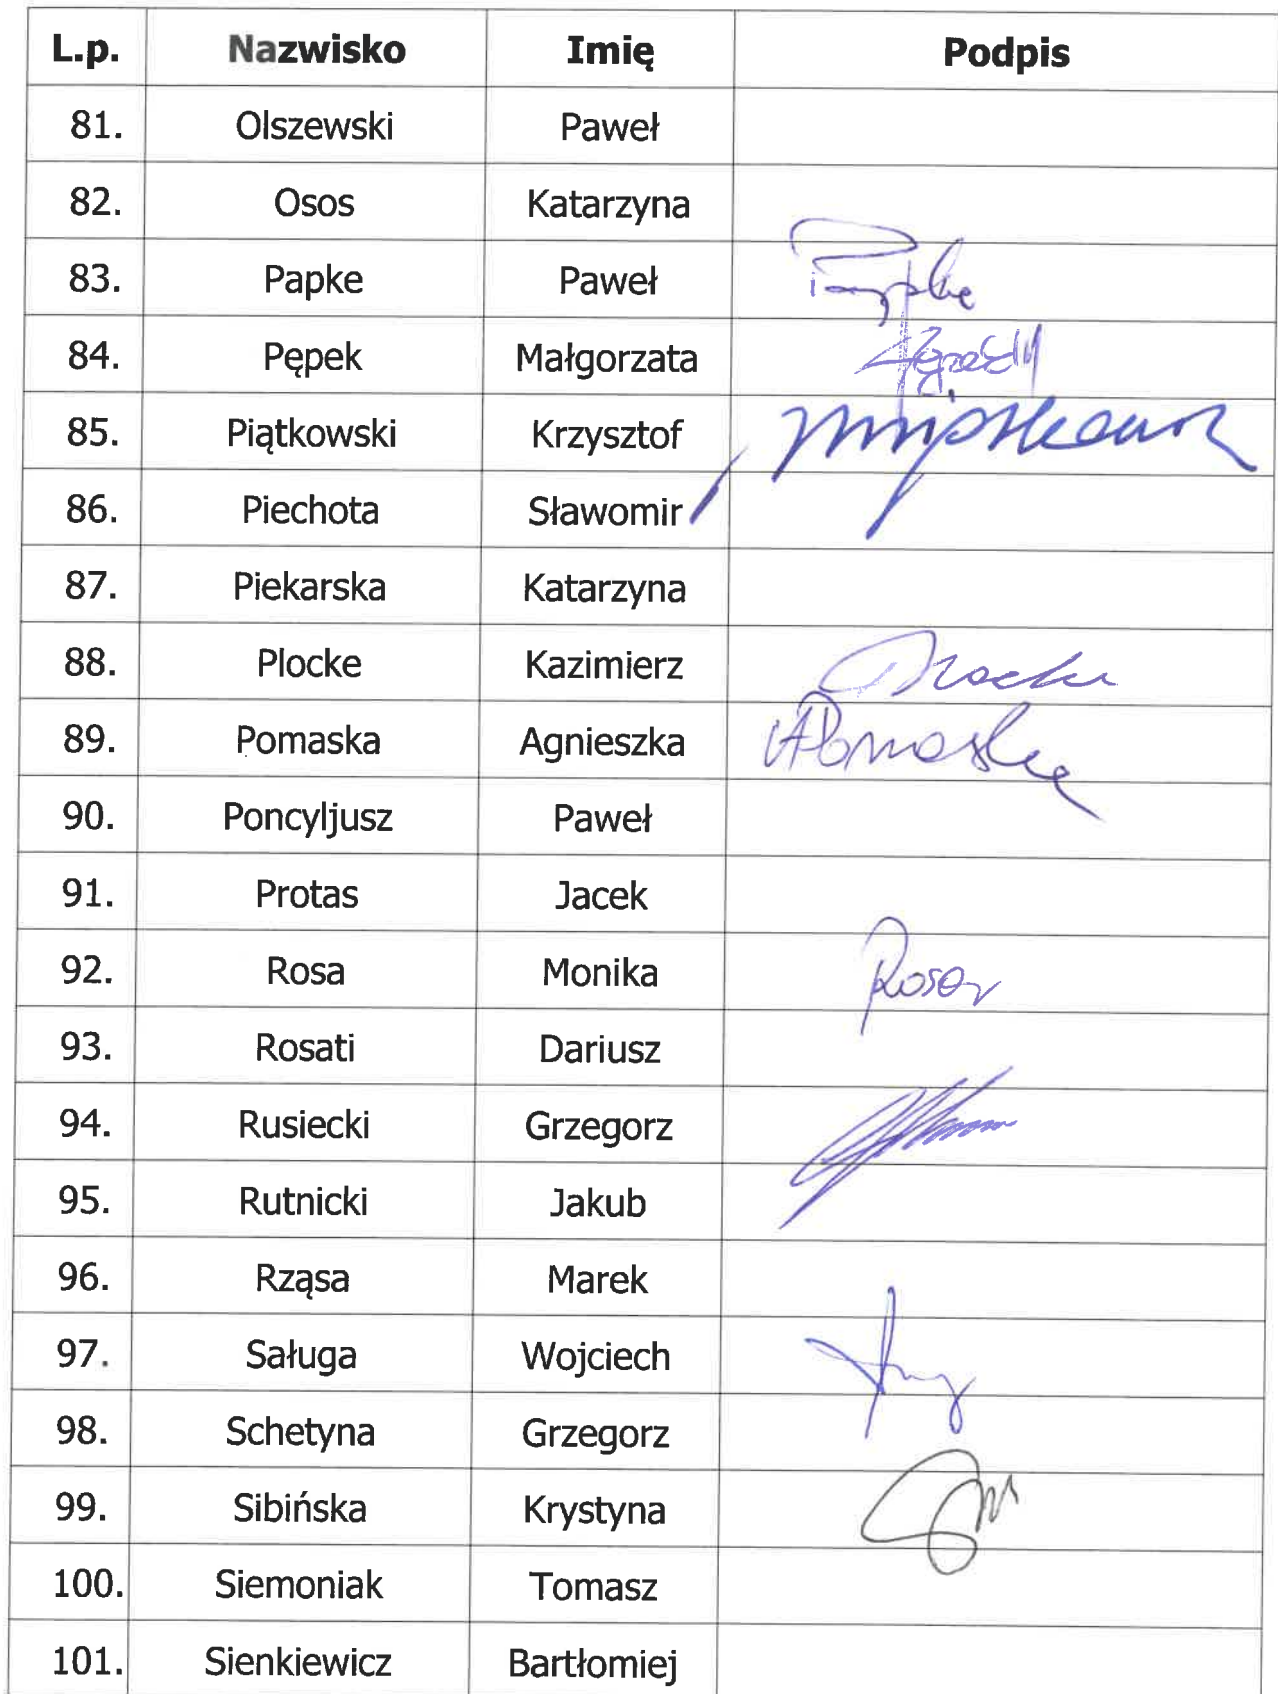 L.p. Nazwisko Imię Podpis
81. Olszewski Paweł
82. Osos Katarzyna
83. Papke Paweł Papke
84. Pępek Małgorzata
85. Piątkowski Krzysztof
86. Piechota Sławomir
87. Piekarska Katarzyna
88. Plocke Kazimierz Plocke
89. Pomaska Agnieszka APomaska
90. Poncyljusz Paweł
91. Protas Jacek
92. Rosa Monika Rosa
93. Rosati Dariusz
94. Rusiecki Grzegorz
95. Rutnicki Jakub
96. Rząsa Marek
97. Saługa Wojciech
98. Schetyna Grzegorz
99. Sibińska Krystyna
100. Siemoniak Tomasz
101. Sienkiewicz Bartłomiej